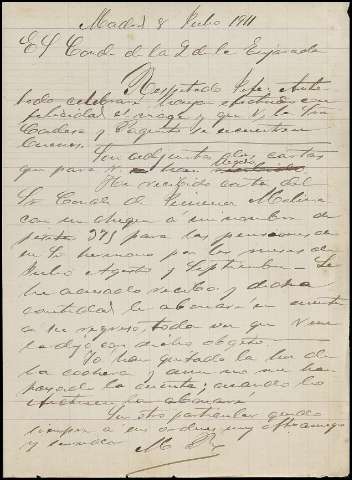 Madrid 8 Julio 1911
El Conde de la Q de la Enjarada
Respetado Jefe: Ante
todo celebraré hayan efectuado con
felicidad el viage y que V, la Sra
Condesa y Paquito se encuentren
buenos.
Son adjuntas las cartas
que para V han llegado
He recibido carta del
Sr Conde de Molina
con un cheque a mi nombre de
pesetas 375 para las pensiones de
su Sr hermano por los meses de
Julio Agosto y Septiembre – Le
he acusado recibo y dicha
cantidad le abonaré en cuenta
a su regreso, toda vez que V me
lo dejó con dicho objeto.
Ya han quitado la luz de
la cochera y aun no me han
pasado la cuenta; cuando lo
efectuen la abonaré.
Sin otro particular quedo
siempre a sus ordenes muy afmo amigo
y servidor